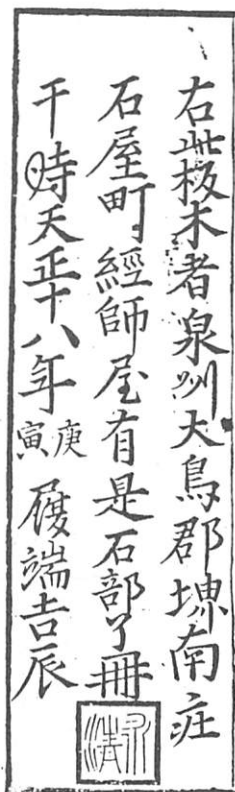 右此板木者泉州大鳥郡堺南庄
石屋町經師屋有是石部了冊
于時天正十八年庚寅履端吉辰